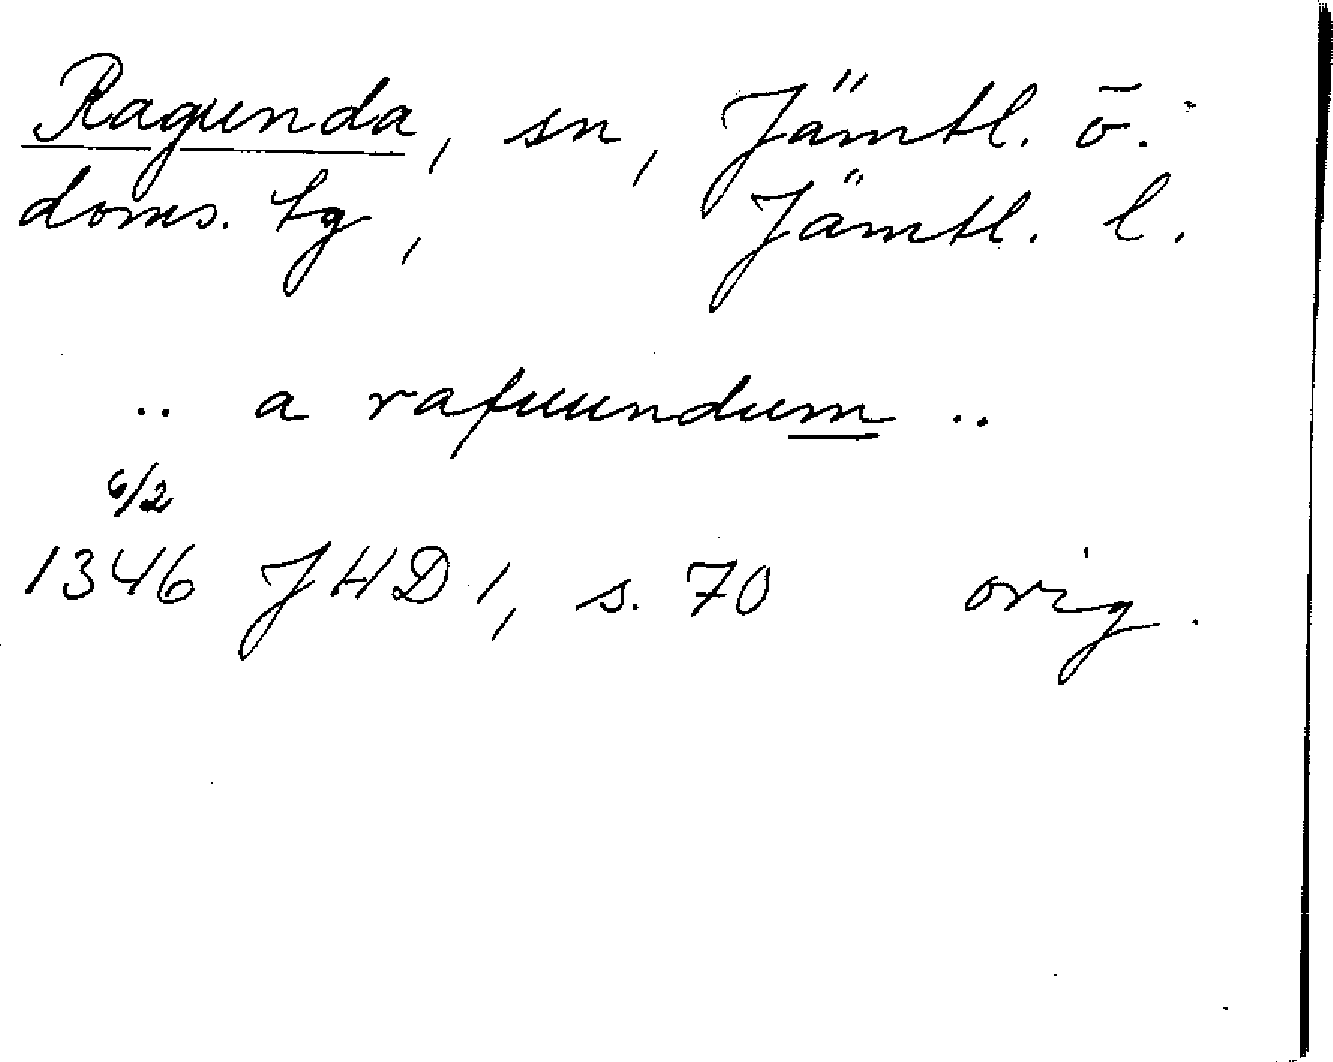 Ragunda, sn, Jämtl. ö.
doms. tg, Jämtl. l.
.. a rafuundum ..
6/2
1346 JHD 1, s. 70 orig.